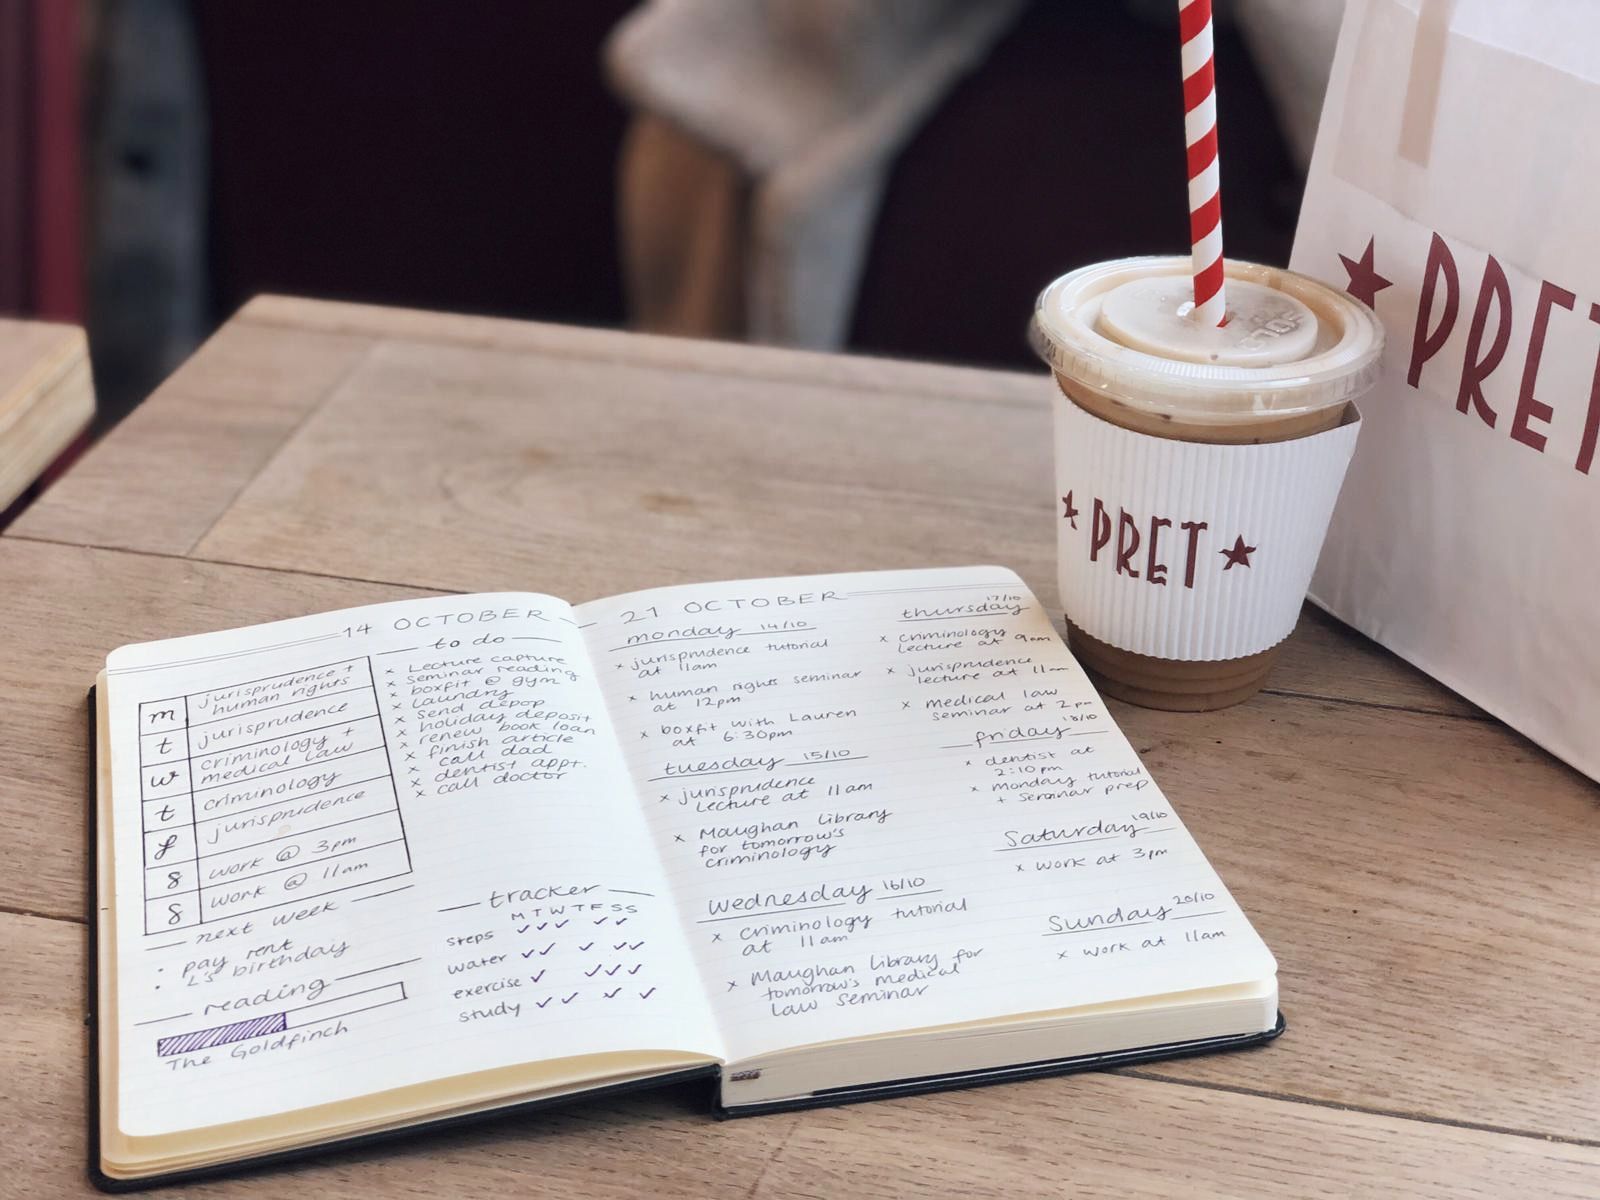 14 OCTOBER — 21 OCTOBER
m jurisprudence +
human rights
t jurisprudence
w criminology +
medical law
t criminology
f jurisprudence
s work @ 3pm
s work @ 11am
next week
• pay rent
• L's birthday
reading
The Goldfinch
to do
x Lecture capture
x seminar reading
x boxfit @ gym
x laundry
x send depop
x holiday deposit
x renew book loan
x finish article
x call dad
x dentist appt.
x call doctor
tracker
M T W T F S S
steps ✓✓✓ ✓✓
water ✓✓ ✓ ✓✓
exercise ✓ ✓✓✓
study ✓✓ ✓ ✓
monday 14/10
x jurisprudence tutorial
at 11am
x human rights seminar
at 12pm
x boxfit with Lauren
at 6:30pm
tuesday 15/10
x jurisprudence
Lecture at 11am
x Maughan Library
for tomorrow's
criminology
wednesday 16/10
x criminology tutorial
at 11am
x Maughan Library for
tomorrow's medical
law seminar
thursday 17/10
x criminology
lecture at 9am
x jurisprudence
lecture at 11am
x medical law
seminar at 2pm
friday 18/10
x dentist at
2:10pm
x monday tutorial
+ seminar prep
Saturday 19/10
x work at 3pm
Sunday 20/10
x work at 11am
★ PRET ★
★ PRET